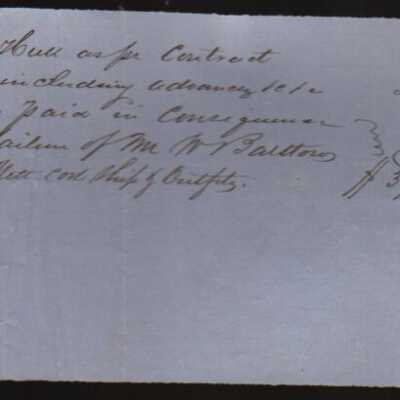 Hull as pr Contract
including advance, &c &c
paid in Consequence
failure of Mr W Balstow
Nett Cost Ship & Outfits. $3